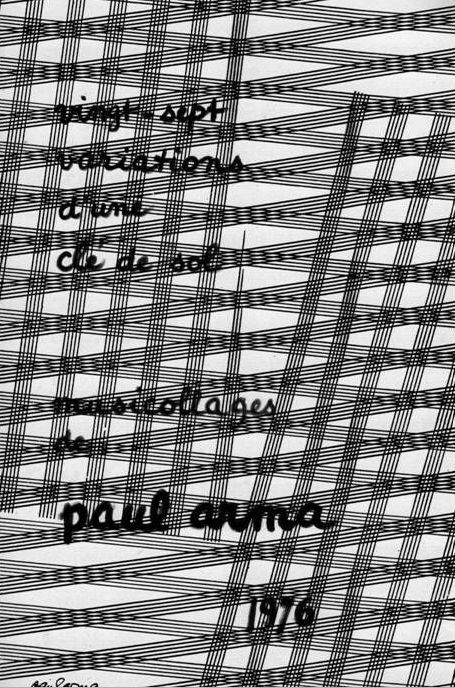 vingt-sept
variations
d'une
clé de sol
musicollages
de
paul arma
1976